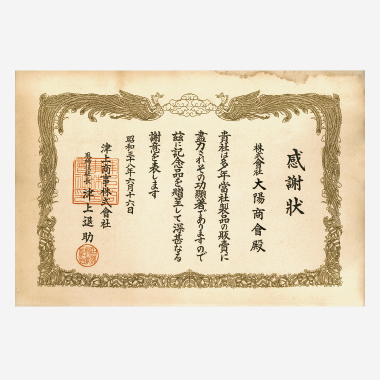 感謝狀
株式会社 大陽商會殿
貴社は多年当社製品の販賣に
盡力されその功顕著でありますので
玆に記念品を贈呈して深甚なる
謝意を表します
昭和三十八年六月十六日
津上商事株式會社
津上退助